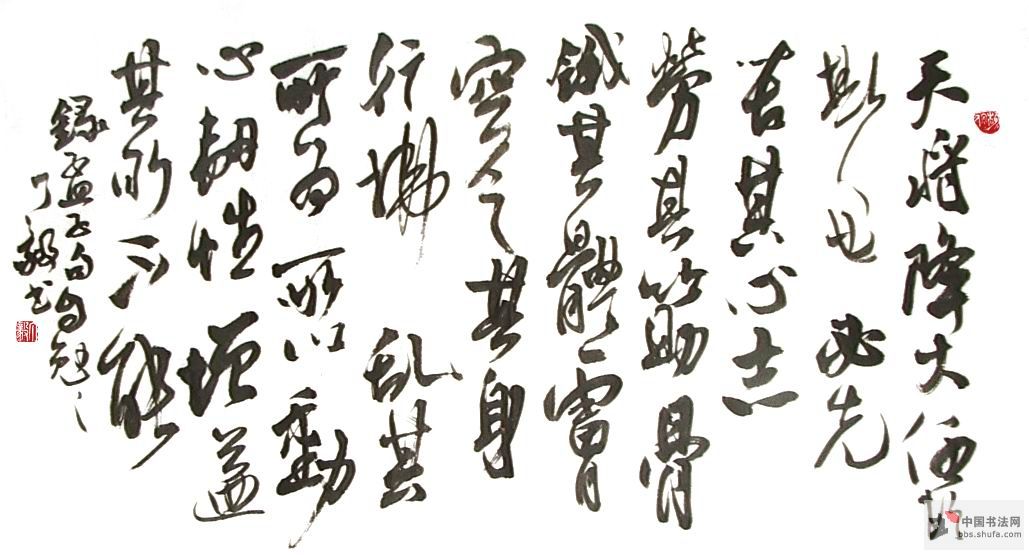 天將降大任於
斯人也必先
苦其心志
勞其筋骨
餓其體膚
空乏其身
行拂乱其
所为所以動
心韌性增益
其所不能
錄孟子句
书
中国书法网
bbs.shufa.com